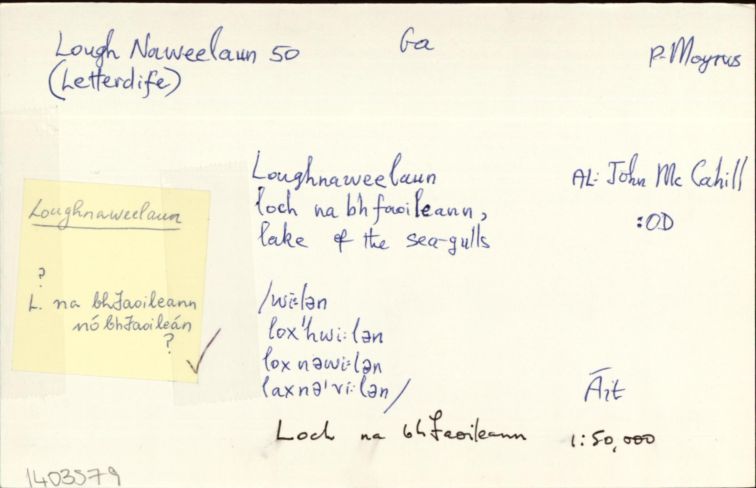 Lough Naweelaun 50
(Letterdife)
Ga
p. Moyrus
Loughnaweelaun
loch na bhfaoileann,
lake of the sea-gulls
AL: John Mc Cahill
:OD
Loughnaweelaun
?
L. na bhfaoileann
nó bhfaoileán
?
/wi:lən
lox'hwi:lən
lox nəwi:lən
laxnə'vi:lən/
Áit
Loch na bhfaoileann
1:50,000
1403579